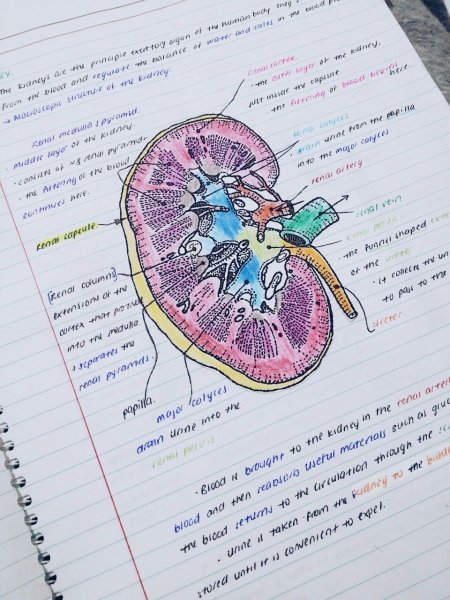 EY
The kidneys are the principle excretory organ of the human body they
from the blood and regulate the balance of water and salts in the blood
→ Macroscopic structure of the kidney
Renal cortex.
· the outer layer of the kidney.
just inside the capsule
· the filtering of blood begins
here.
Renal medulla / pyramid.
· middle layer of the kidney.
· consists of renal pyramids.
· the filtering of the blood
continues here.
calyces
drain urine from the papilla
into the major calyces
renal artery
renal vein
renal pelvis
· the funnel shaped
of the ureter
· it collects the
to pass to the
ureter
Renal capsule
(Renal column)
extensions of the
cortex that
into the medulla.
· separates the
renal pyramids.
papilla.
major calyces
drain urine into the
renal pelvis
· Blood is brought to the kidney in the renal
blood and then reabsorbs useful materials such as
the blood returns to the circulation through the
· Urine is taken from the kidney to the
stored until it is convenient to expel.